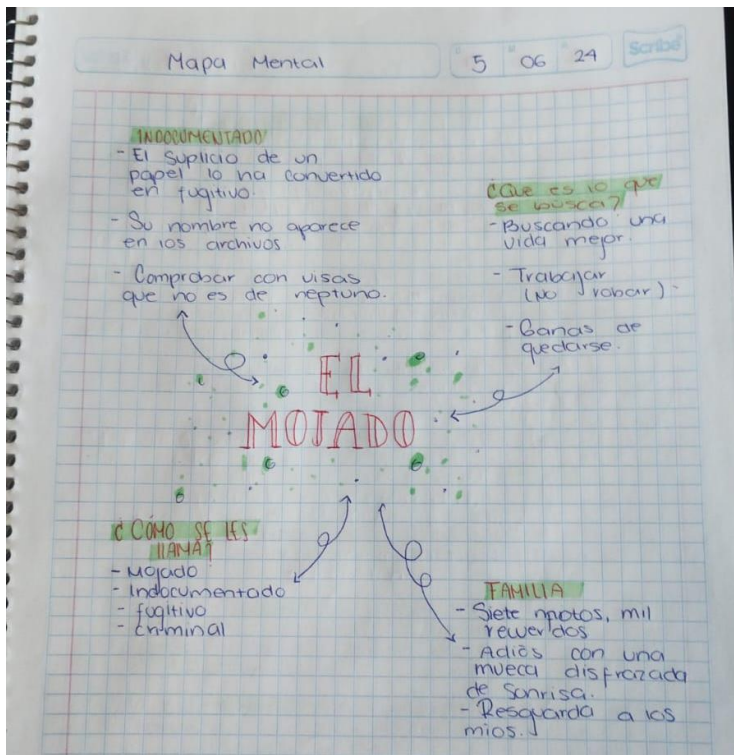 Mapa Mental
5 06 24
Scribe
INDOCUMENTADO
- El suplicio de un
papel lo ha convertido
en fugitivo.
- Su nombre no aparece
en los archivos
- Comprobar con visas
que no es de neptuno.
¿Que es lo que
se busca?
- Buscando una
vida mejor.
- Trabajar
(No robar).
- Ganas de
quedarse.
EL
MOJADO
¿COMO SE LES
LLAMA?
- Mojado
- Indocumentado
- fugitivo
- Criminal
FAMILIA
- Siete fotos, mil
recuerdos
- Adiós con una
mueca disfrazada
de sonrisa.
- Resguarda a los
mios.